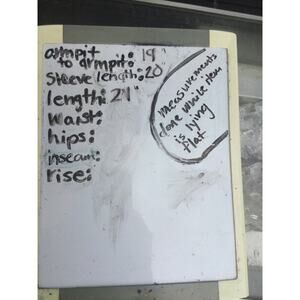 armpit
to armpit: 19"
Sleeve length: 20
length: 21"
waist:
hips:
inseam:
rise:
measurements
done while item
is lying
flat